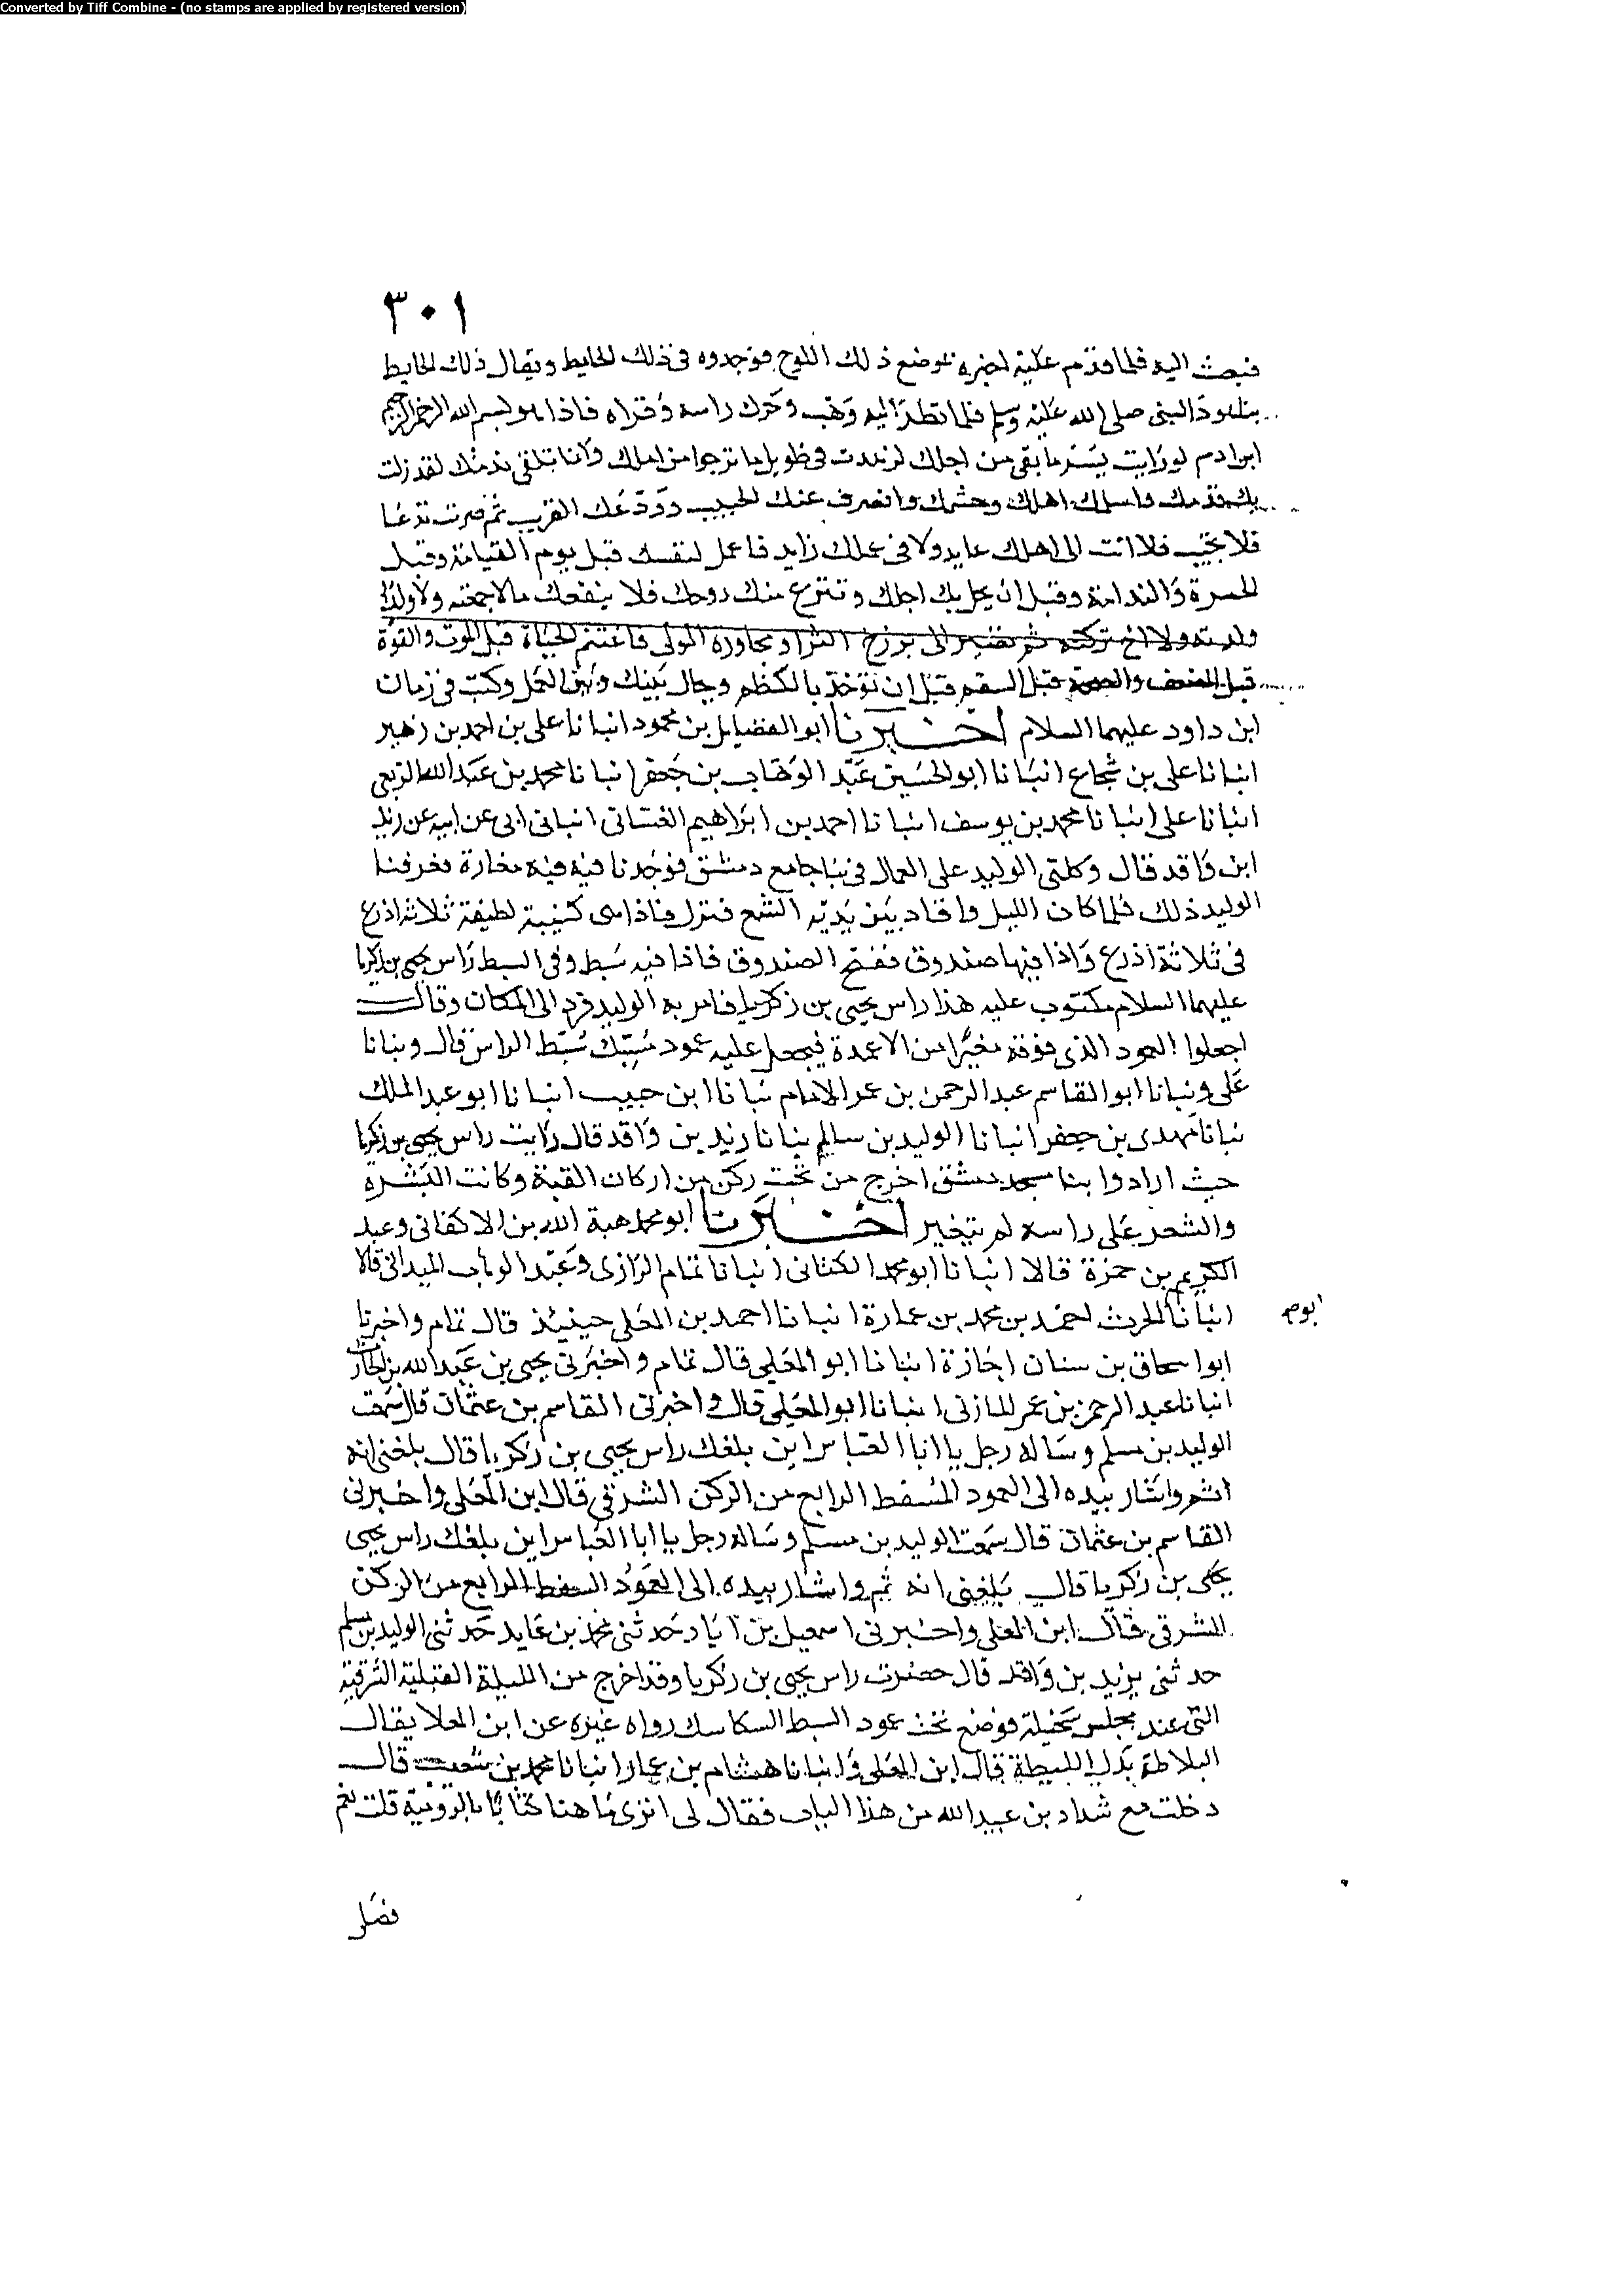 Converted by Tiff Combine - (no stamps are applied by registered version)
٣٠١
فبعث اليه فلما قدم عليه اخبره بموضع ذلك اللوح فوجدوه في ذلك الحايط ويقال ذلك الحايط
هود النبي صلى الله عليه وسلم فلما نظر اليه وهب وحرك راسه وقراه فاذا هو بسم الله الرحمن الرحيم
ابن ادم لو رايت يسير ما بقي من اجلك لزهدت في طويل ما ترجوا من املك وانما تلقى ندمك لقد زلت
بك قدمك واسلمك اهلك وحشمك وانصرف عنك الحبيب وودعك القريب ثم صرت تدعا
فلا تجيب فلا انت الى اهلك عايد ولا في عملك زايد فاعمل لنفسك قبل يوم القيامة وقبل
الحسرة والندامة وقبل ان يحل بك اجلك وتنتزع منك روحك فلا ينفعك مال جمعته ولا ولد
ولدته ولا اخ تركته ثم تصير الى برزخ الثرا ومجاورة المولى فاغتنم الحياة قبل الموت والقوة
قبل الضعف والصحة قبل السقم قبل ان تؤخذ بالكظم ويحال بينك وبين العمل وكتب في زمان
ابن داود عليهما السلام اخبرنا ابو الفضايل بن محمود انبانا علي بن احمد بن زهير
انبانا علي بن شجاع انبانا ابو الحسين عبد الوهاب بن جعفر انبانا محمد بن عبد الله الربعي
انبانا علي انبانا محمد بن يوسف انبانا احمد بن ابراهيم الغساني انباني ابي عن ابيه عن زيد
ابن واقد قال وكلني الوليد على العمال في بنا جامع دمشق فوجدنا فيه فيه مغارة فعرفنا
الوليد ذلك فلما كان الليل وافاد بين يديه الشمع فنزل فاذا هي كنيسة لطيفة ثلاثة اذرع
في ثلاثة اذرع واذا فيها صندوق ففتح الصندوق فاذا فيه سبط وفي السبط راس يحيى بن زكريا
عليهما السلام مكتوب عليه هذا راس يحيى بن زكريا فامر به الوليد فرد الى المكان وقال
اجعلوا العمود الذي فوقه مغيرا من الاعمدة فجعل عليه عمود مسبك سبط الراس قال ونبانا
علي ونبانا ابو القاسم عبد الرحمن بن عمر الامام نبانا ابن حبيب انبانا ابو عبد الملك
نبانا مهدي بن جعفر انبانا الوليد بن سالم نبانا زيد بن واقد قال رايت راس يحيى بن زكريا
حيث ارادوا بنا مسجد دمشق اخرج من تحت ركن من اركان القبة وكانت البشرة
والشعر على راسه لم يتغير اخبرنا ابو محمد هبة الله بن الاكفاني وعبد
الكريم بن حمزة قالا انبانا ابو محمد الكتاني انبانا تمام الرازي وعبد الوهاب الميداني قالا
انبانا الحرث احمد بن محمد بن عمارة انبانا احمد بن المعلى حينئذ قال تمام واخبرنا
ابو اسحاق بن سنان اجازة انبانا ابو المعلى قال تمام واخبرني يحيى بن عبد الله بن الحارث
انبانا عبد الرحمن بن عمر المازني انبانا ابو المعلى قال واخبرني القاسم بن عثمان قال سمعت
الوليد بن مسلم وساله رجل يا ابا العباس اين بلغك راس يحيى بن زكريا قال بلغني انه
اثم واشار بيده الى العمود المسفط الرابع من الركن الشرقي قال ابن المعلى واخبرني
القاسم بن عثمان قال سمعت الوليد بن مسلم وساله رجل يا ابا العباس اين بلغك راس يحيى
يحيى بن زكريا قال بلغني انه ثم واشار بيده الى العمود السفط الرابع من الركن
الشرقي قال ابن المعلى واخبرني اسمعيل بن ابان حدثني محمد بن عايد حدثني الوليد بن مسلم
حدثني يزيد بن واقد قال حضرت راس يحيى بن زكريا وقد اخرج من الليبلة القبلية الشرقية
التي عند مجلس بجيلة فوضع تحت عمود السبط السكاسك رواه غيره عن ابن المعلا يقال
البلاطة بدل الليبطة قال ابن المعلى وانبانا هشام بن عمار انبانا محمد بن شعيب قال
دخلت مع شداد بن عبيد الله من هذا الباب فقال لي اترى ها هنا كتابا بالرومية قلت نعم